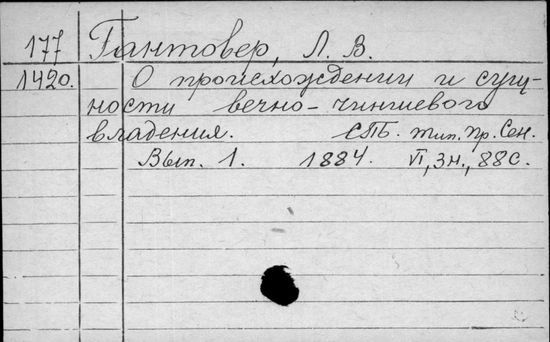 177 Гантовер, Л. В.
1420. О происхождении и сущ-
ности вечно-чиншевого
владения. СПБ. тип. Пр. Сен.
Вып. 1. 1884. VI, 3н., 88 с.